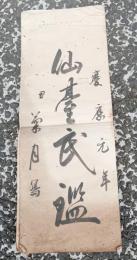 慶應元年
仙臺武鑑
丑菊月寫